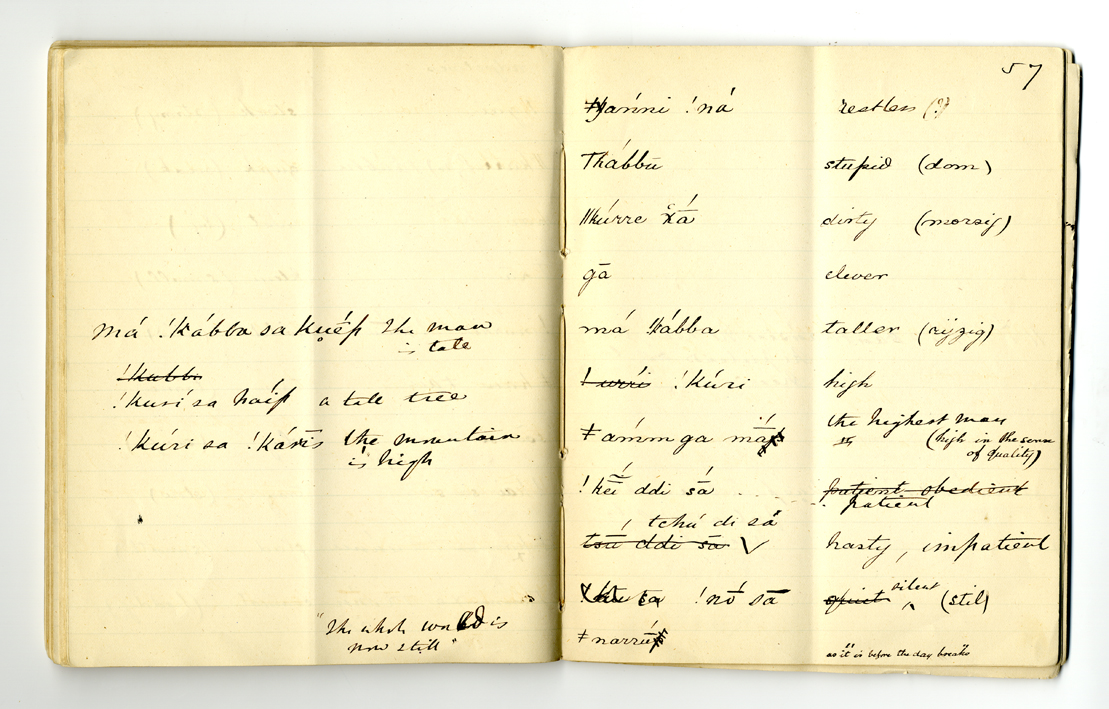 má !kábba sa kuḗp the man
is tall
!kubbi
!kuri sa haíp a tall tree
!kúri sa !kárīs the mountain
is high
"the whole world is
now still"
57
ǂgánni !ná restless (?)
Thábbū stupid (dom)
ǁkúrre xā́ dirty (morsig)
gā clever
má !kábba taller (rijzig)
!urri !kúri high
ǂámm ga mā́ the highest man
is (high in the sense
of quality)
!kéī ddi sā patient obedient
patient
tchú di sā
tsū́ ddi sā hasty, impatient
sa !nṓ sā quiet silent (stil)
ǂnarrū as it is before the day breaks